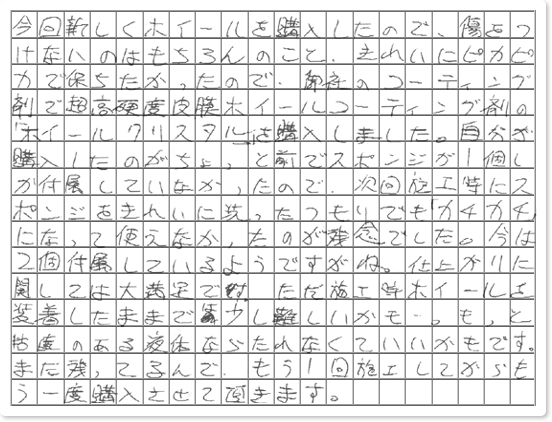 今回新しくホイールを購入したので、傷をつ
けないのはもちろんのこと、きれいにピカピ
カで保ちたかったので、御社のコーティング
剤で超高硬度皮膜ホイールコーティング剤の
「ホイールクリスタル」を購入しました。自分が
購入したのがちょっと前でスポンジが1個し
か付属していなかったので、次回施工時にス
ポンジをきれいに洗ったつもりでも「カチカチ」
になって使えなかったのが残念でした。今は
2個付属しているようですがね。仕上がりに
関しては大満足です。ただ施工時ホイールを
装着したままで少し難しいかも…。も、と
粘度のある液体ならたれなくていいかもです。
まだ残ってるんで、もう1回施工してからも
う一度購入させて頂きます。